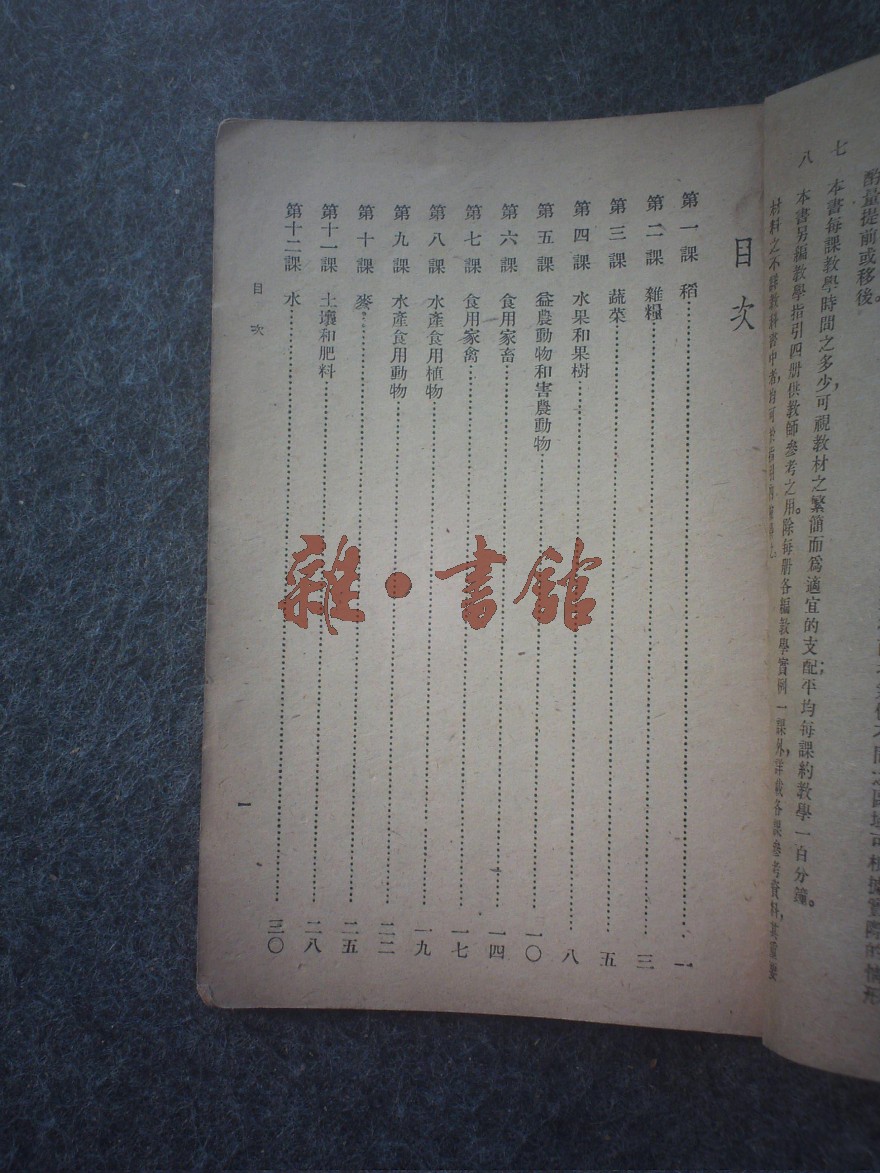 酌量提前或移後。
七 本書每課教學時間之多少,可視教材之繁簡而爲適宜的支配;平均每課約教學一百分鐘。
八 本書另編教學指引四册,供教師參考之用。除每册各編教學實例一課外,詳載各課參考資料,其重要
材料之不詳教科書中者,均可
目次
第一課 稻 一
第二課 雜糧 三
第三課 蔬菜 五
第四課 水果和果樹 八
第五課 益農動物和害農動物 一〇
第六課 食用家畜 一四
第七課 食用家禽 一七
第八課 水產食用植物 一九
第九課 水產食用動物 二二
第十課 麥 二五
第十一課 土壤和肥料 二八
第十二課 水 三〇
目次
一
雜·書館